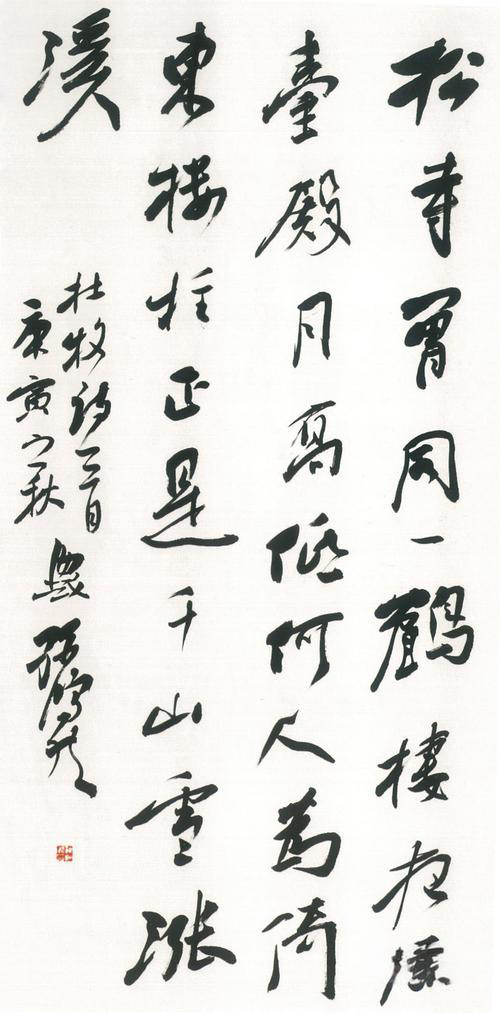 松寺曾同一鶴棲夜深
臺殿月高低何人為倚
東樓柱正是千山雪漲
溪
杜牧詩一首
庚寅之秋